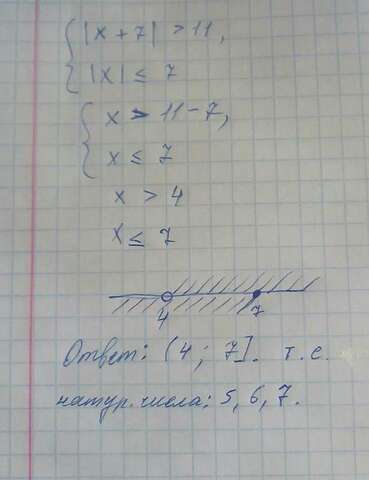 |x + 7| > 11,
|x| ≤ 7
x > 11 - 7,
x ≤ 7
x > 4
x ≤ 7
4 7
Ответ: (4 ; 7]. т.е.
натур. числа: 5, 6, 7.